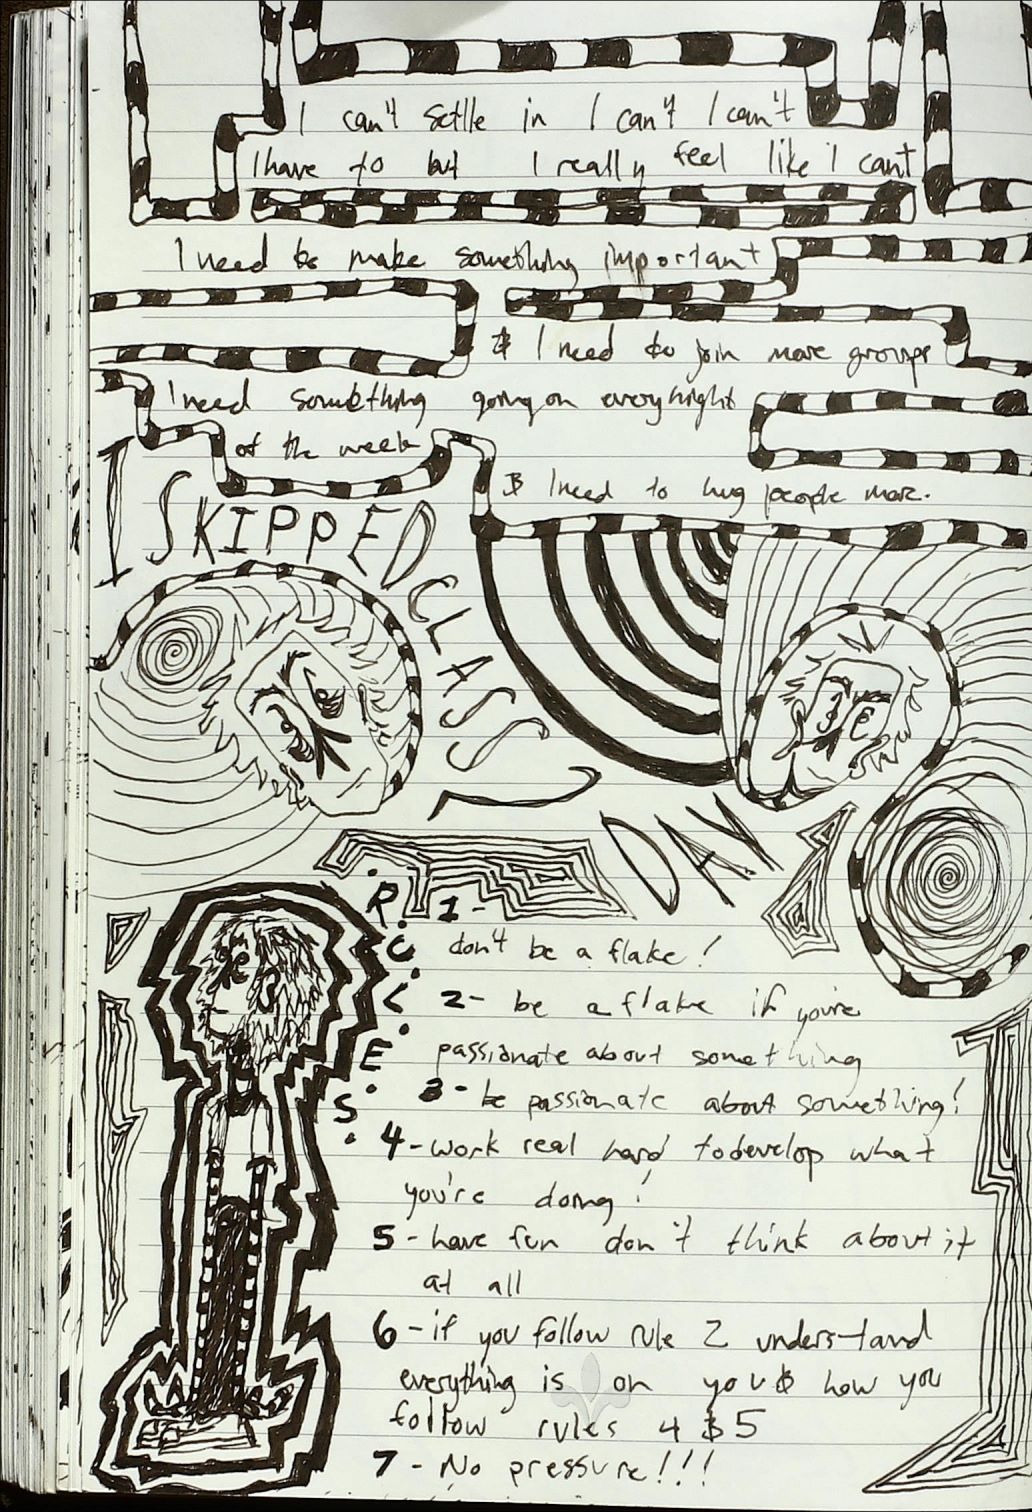 I can't settle in I can't I can't
I have to but I really feel like I can't
I need to make something important
& I need to join more groups
I need something going on every night
of the week
& I need to hug people more.
I SKIPPED CLASS TODAY
RULES
1-
don't be a flake!
2- be a flake if you're
passionate about something
3- be passionate about something!
4- work real hard to develop what
you're doing!
5- have fun don't think about it
at all
6- if you follow rule 2 understand
everything is on you & how you
follow rules 4 & 5
7- No pressure!!!